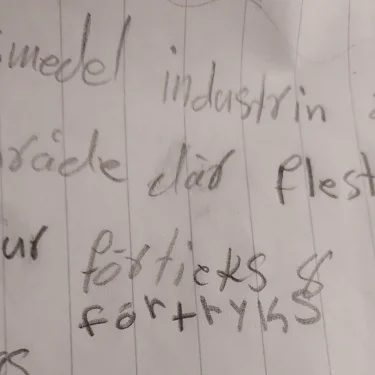 medel industrin
råde där flest
ur förticks &
förtryks